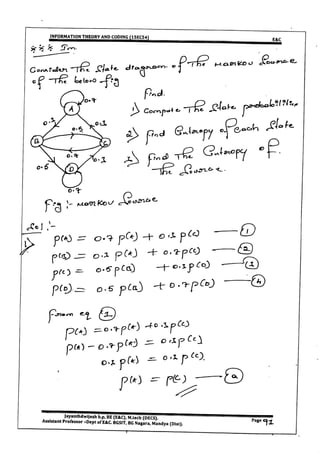 INFORMATION THEORY AND CODING (15EC54) E&C
Consider The State diagram of The MARKOV Source
of The below fig
find.
1) Compute The State probabilities
2) find Entropy of each State
3) find The Entropy of
The Source.
0.7
A
0.5
B
C
0.7
0.5
D
0.7
Fig :- MARKOV Source
Sol :-
1)
P(A) = 0.7 P(A) + 0.3 P(C) —①
P(B) = 0.3 P(A) + 0.7 P(C) —②
P(C) = 0.5 P(B) + 0.3 P(D) —③
P(D) = 0.5 P(B) + 0.7 P(D) —④
From eq ①
P(A) = 0.7 P(A) + 0.3 P(C)
P(A) - 0.7 P(A) = 0.3 P(C)
0.3 P(A) = 0.3 P(C)
P(A) = P(C) —ⓐ
Jayanthdwijesh h.p, BE (E&C), M.tech (DECS).
Assistant Professor –Dept of E&C. BGSIT, BG Nagara, Mandya (Dist).
Page 91